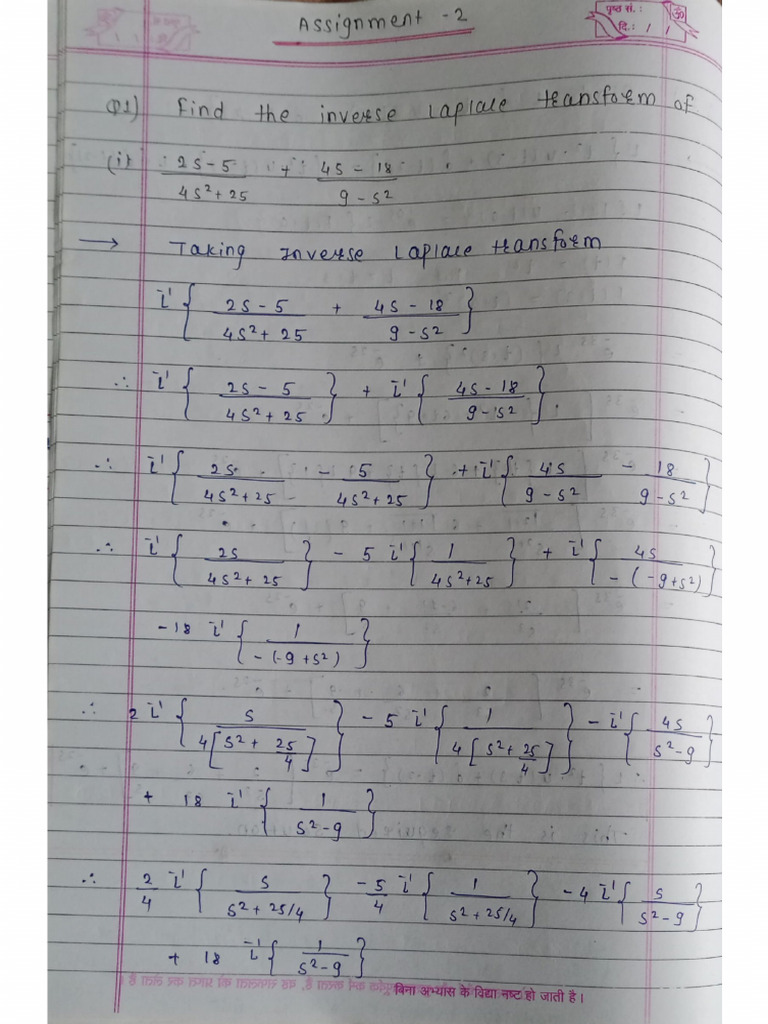 Assignment -2
पृष्ठ सं.:
ॐ
दि.: / /
Q1) Find the inverse Laplace transform of
(i) 2s-5/4s²+25 + 4s-18/9-s²
→ Taking Inverse Laplace transform
L⁻¹{2s-5/4s²+25 + 4s-18/9-s²}
∴ L⁻¹{2s-5/4s²+25} + L⁻¹{4s-18/9-s²}
∴ L⁻¹{2s/4s²+25 - 5/4s²+25} + L⁻¹{4s/9-s² - 18/9-s²}
∴ L⁻¹{2s/4s²+25} - 5 L⁻¹{1/4s²+25} + L⁻¹{4s/-(-9+s²)}
-18 L⁻¹{1/-(-9+s²)}
∴ 2 L⁻¹{s/4[s²+25/4]} - 5 L⁻¹{1/4[s²+25/4]} - L⁻¹{4s/s²-9}
+ 18 L⁻¹{1/s²-9}
∴ 2/4 L⁻¹{s/s²+25/4} -5/4 L⁻¹{1/s²+25/4} -4 L⁻¹{s/s²-9}
+ 18 L⁻¹{1/s²-9}
बिना अभ्यास के विद्या नष्ट हो जाती है।